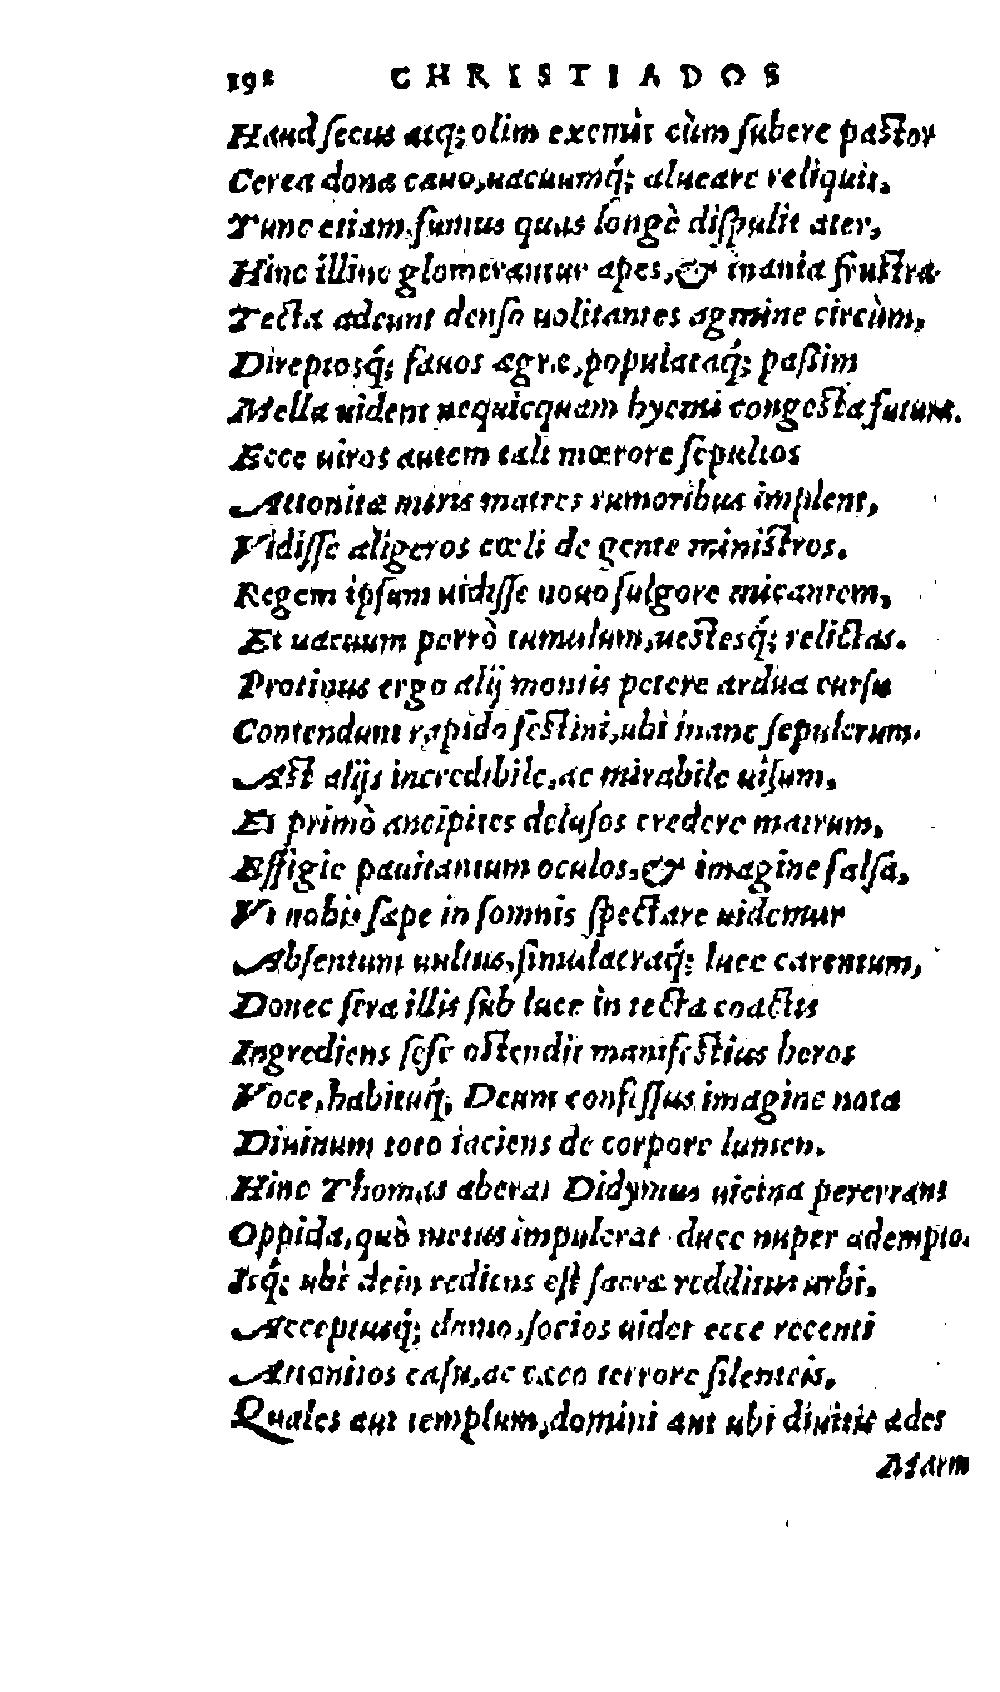 192 CHRISTIADOS
Haud secus atq; olim exenùt cùm subere pastor
Cerea dona cauo, uacuumq́; alueare reliquit,
Tunc etiam, fumus quas longè dispulit ater,
Hinc illinc glomerantur apes, & inania frustra
Tecta adeunt denso uolitantes agmine circùm,
Direptosq́; fauos ægræ, populataq́; paßim
Mella uident nequicquam hyemi congesta futuræ.
Ecce uiros autem tali mœrore sepultos
Attonitæ miris matres rumoribus implent,
Vidisse aligeros cœli de gente ministros.
Regem ipsum uidisse nouo fulgore micantem,
Et uacuum porrò tumulum, uestesq́; relictas.
Protinus ergo alij montis petere ardua cursu
Contendunt rapido festini, ubi inane sepulcrum.
Ast alijs incredibile, ac mirabile uisum,
Et primò ancipites delusos credere matrum,
Effigie pauitantum oculos, & imagine falsa,
Vt nobis sæpe in somnis spectare uidemur
Absentum uultus, simulacraq́; luce carentum,
Donec sera illis sub luce in tecta coactis
Ingrediens sese ostendit manifestius heros
Voce, habituq́; Deum confissus imagine nota
Diuinum toto iaciens de corpore lumen.
Hinc Thomas aberat Didymus uicina pererrans
Oppida, quò metus impulerat duce nuper adempto.
Isq́; ubi dein rediens est sacræ redditus urbi,
Acceptusq́; domo, socios uidet ecce recenti
Attonitos casu, ac cæco terrore silenteis,
Quales aut templum, domini aut ubi diuitis ædes
Marm